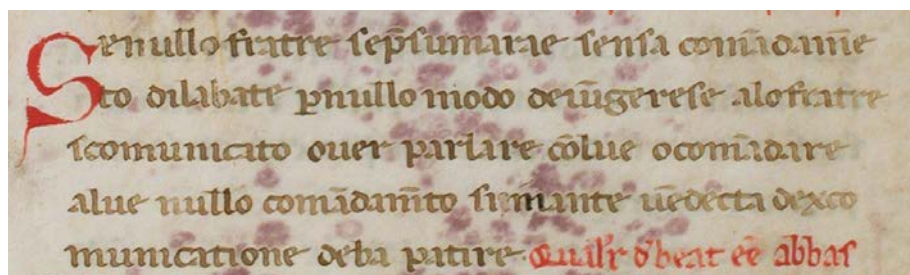 Senullo fratre sep̄sumarae sensa comādam̄e
to dilabate ꝑnullo modo deiūgerese alofratre
scomunicato ouer parlare cōlue ocomādare
alue nullo comādam̄to uēdecta dexco
municatione deba patire. Qualr̄ d̄beat eē abbas